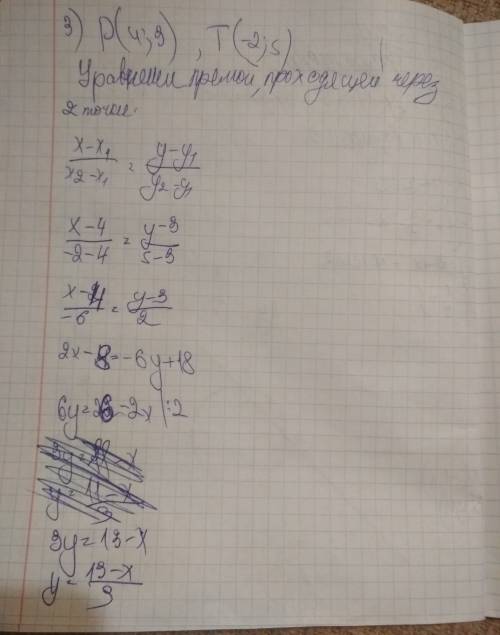 3) P(4;3), T(-2;5)
Уравнении прямой, проходящей через
2 точки.
x-x₁/x₂-x₁ = y-y₁/y₂-y₁
x-4/-2-4 = y-3/5-3
x-4/-6 = y-3/2
2x-8=-6y+18
6y=26-2x |:2
3y=13-x
y=13-x/3